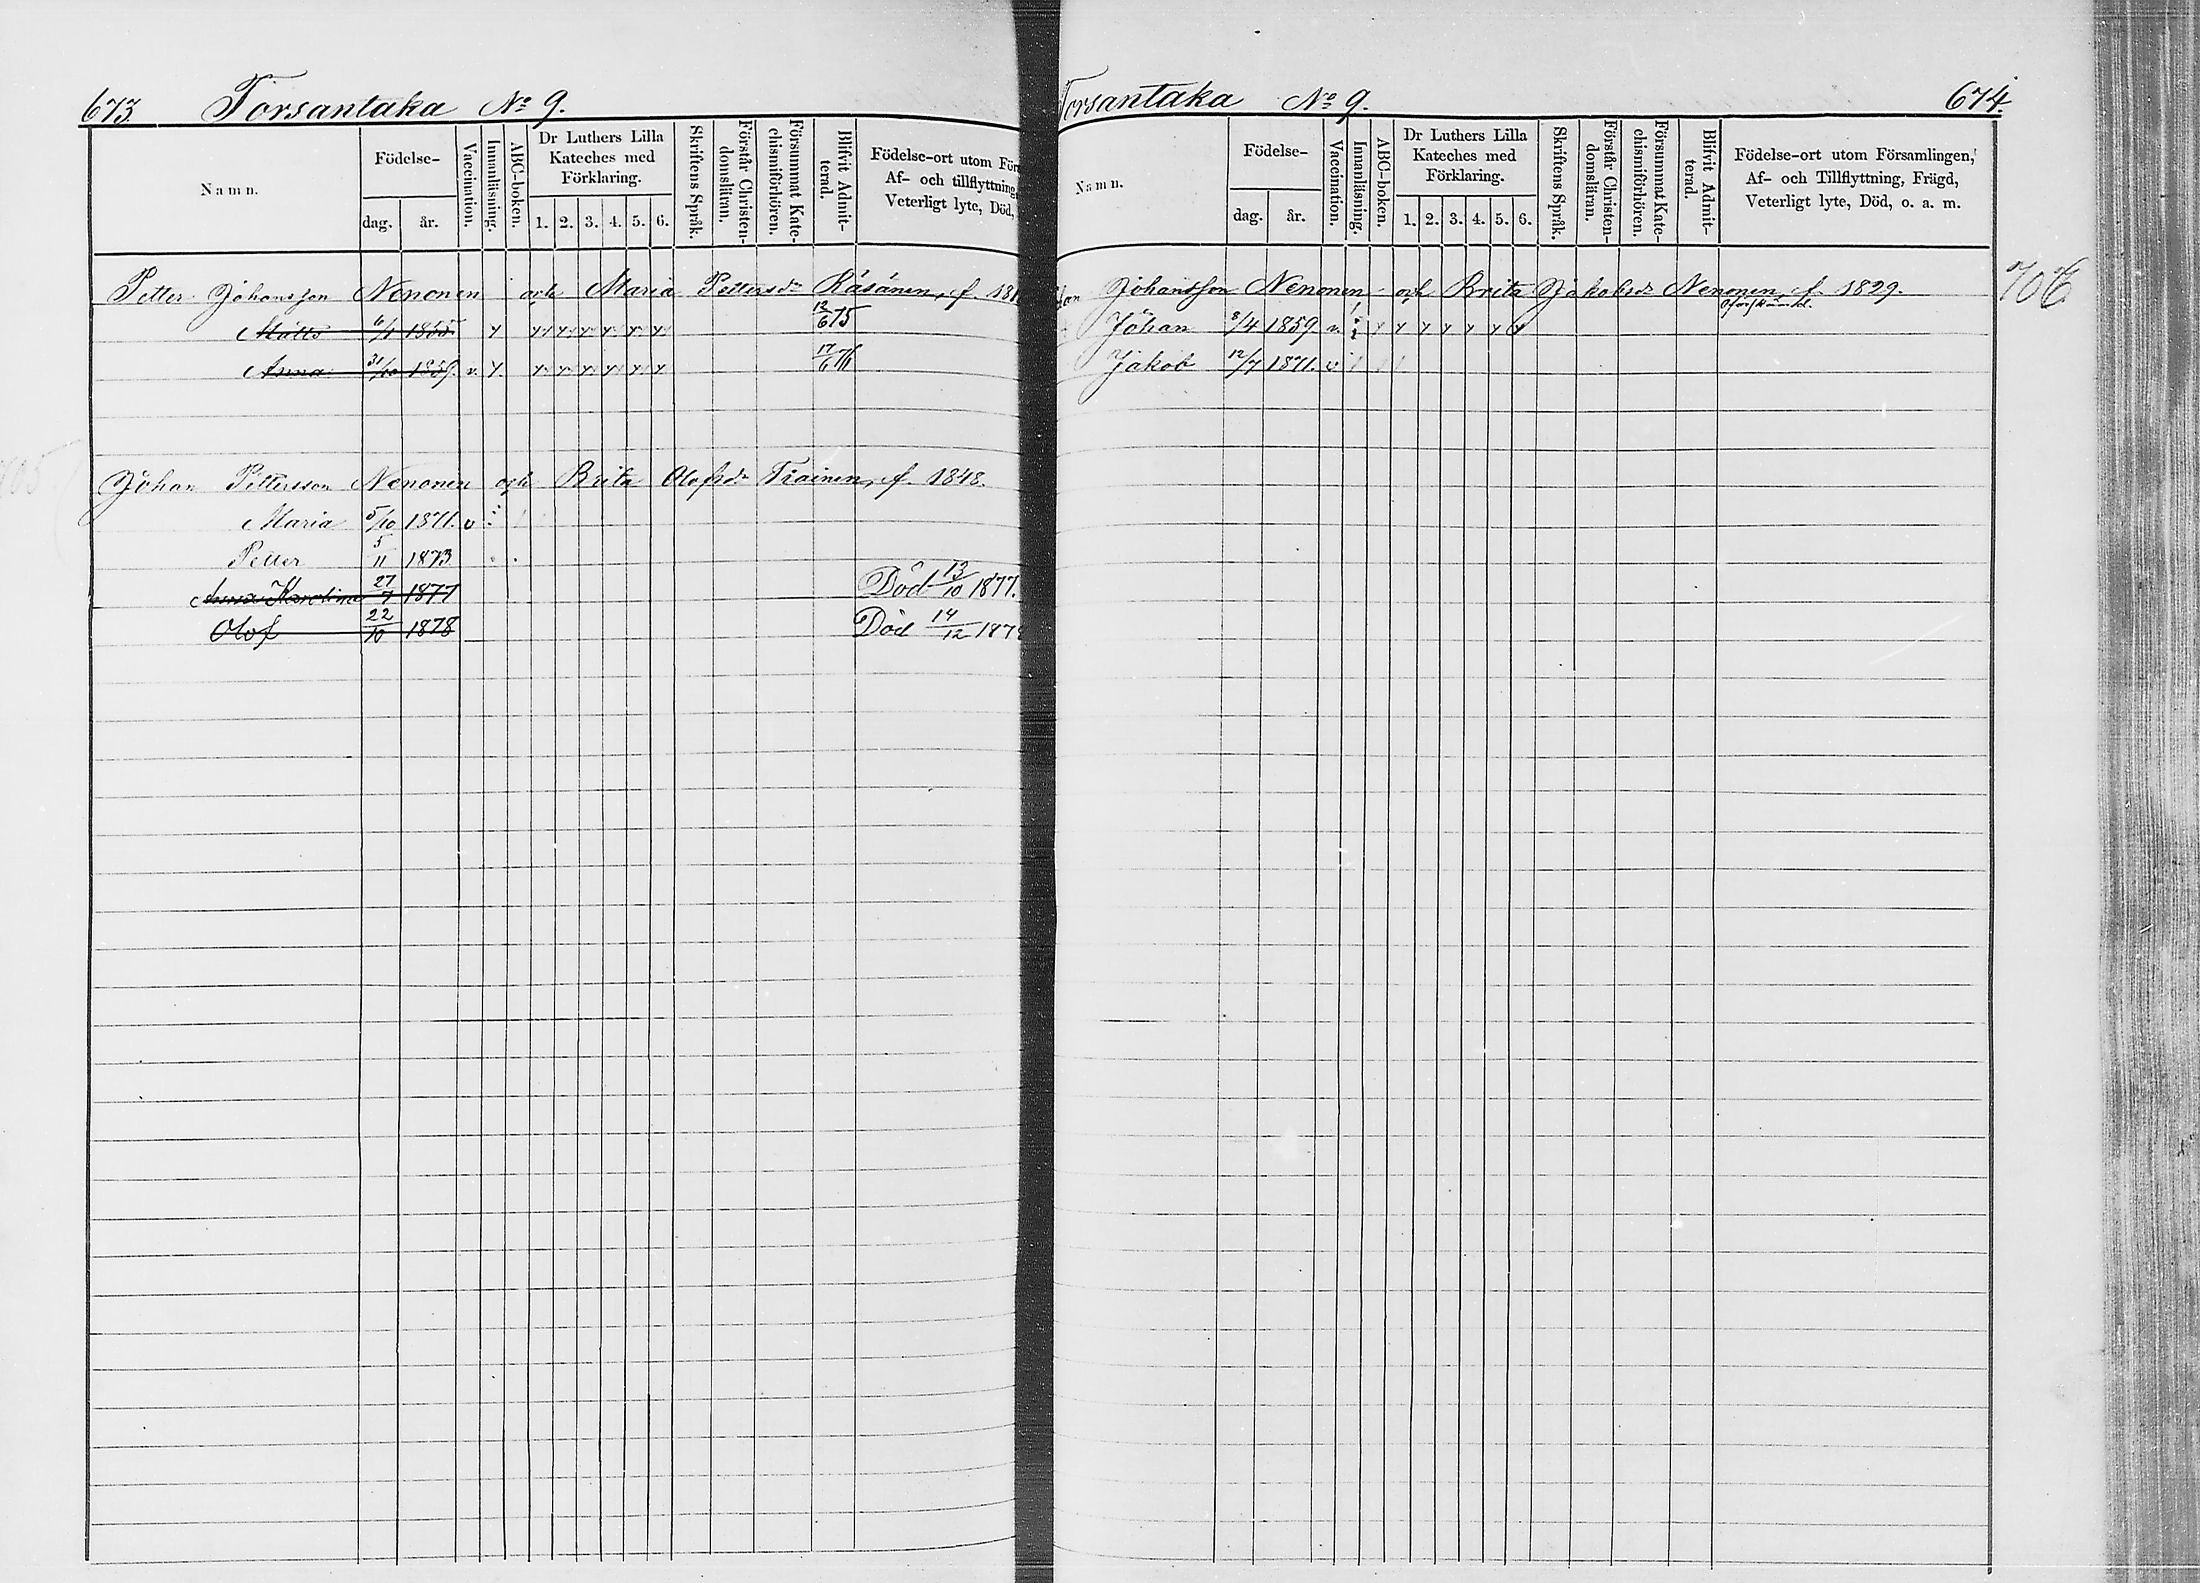 673 Torsantaka No 9.
Namn.
Födelse-
dag.
år.
Vaccination.
Innanläsning.
ABC-boken.
Dr Luthers Lilla
Kateches med
Förklaring.
1. 2. 3. 4. 5. 6.
Skriftens Språk.
Förstår Christen-
domsläran.
Försummat Kate-
chismiförhören.
Blifvit Admit-
terad.
Födelse-ort utom För
Af- och tillflyttning
Veterligt lyte, Död,
Petter Johansson Nenonen och Maria Pettersdr Räsänen, f. 181
Matts 6/1 1855 y y y y y y y 12/6 75
Anna 31/10 1859. v. y. y y y y y y 17/6 76
Johan Pettersson Nenonen och Brita Olofsdr Tiainen, f. 1848.
Maria 5/10 1871. v
Petter 5/11 1873
Anna Karolina 27/7 1877 Död 13/10 1877.
Olof 22/10 1878 Död 14/12 187
Torsantaka No 9. 674.
Namn.
Födelse-
dag.
år.
Vaccination.
Innanläsning.
ABC-boken.
Dr Luthers Lilla
Kateches med
Förklaring.
1. 2. 3. 4. 5. 6.
Skriftens Språk.
Förstår Christen-
domsläran.
Försummat Kate-
chismiförhören.
Blifvit Admit-
terad.
Födelse-ort utom Församlingen,
Af- och Tillflyttning, Frägd,
Veterligt lyte, Död, o. a. m.
Johansson Nenonen och Brita Jakobsdr Nenonen, f. 1829.
706
Johan 8/4 1859 v. y y y y y y y
Jakob 12/7 1871. v